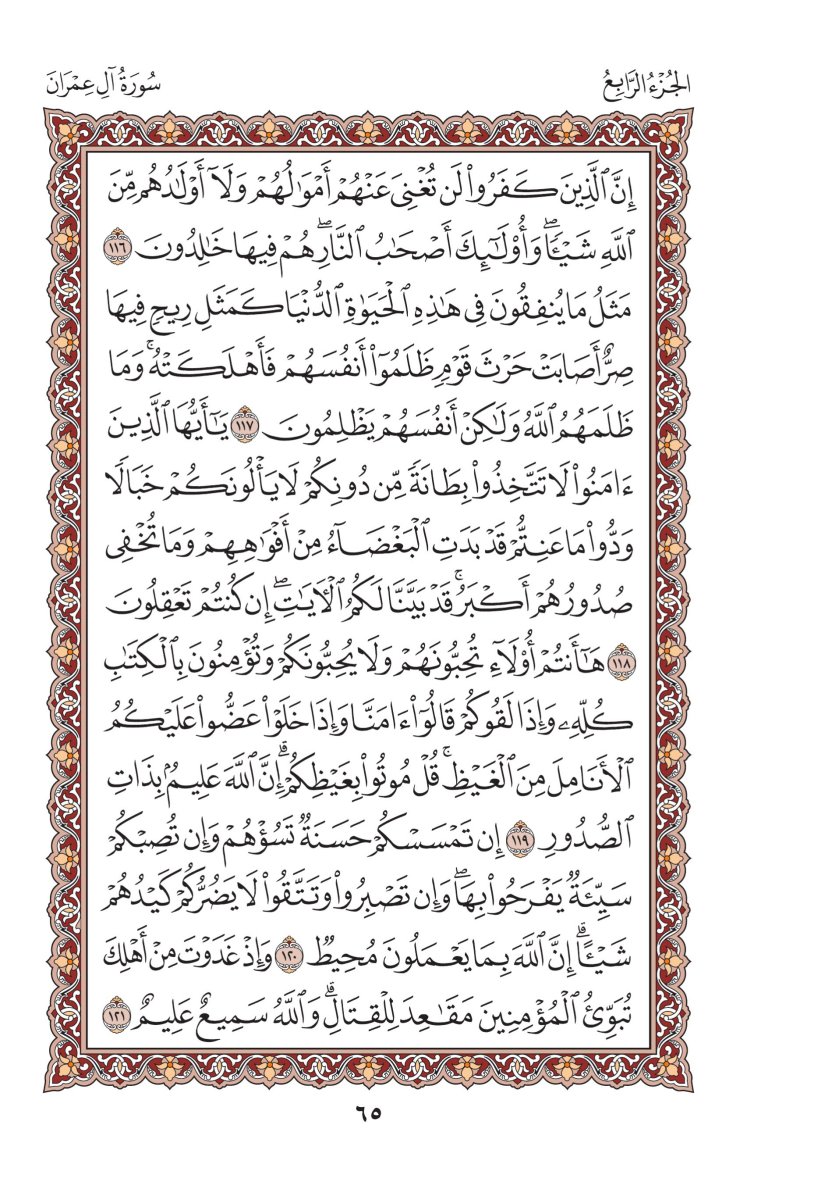 الجُزْءُ الرَّابِعُ
سُورَةُ آلِ عِمْرَانَ
إِنَّ ٱلَّذِينَ كَفَرُوا۟ لَن تُغْنِىَ عَنْهُمْ أَمْوَٰلُهُمْ وَلَآ أَوْلَٰدُهُم مِّنَ
ٱللَّهِ شَيْـًٔاۖ وَأُو۟لَٰٓئِكَ أَصْحَٰبُ ٱلنَّارِۖ هُمْ فِيهَا خَٰلِدُونَ ١١٦
مَثَلُ مَا يُنفِقُونَ فِى هَٰذِهِ ٱلْحَيَوٰةِ ٱلدُّنْيَا كَمَثَلِ رِيحٍ فِيهَا
صِرٌّ أَصَابَتْ حَرْثَ قَوْمٍ ظَلَمُوٓا۟ أَنفُسَهُمْ فَأَهْلَكَتْهُۚ وَمَا
ظَلَمَهُمُ ٱللَّهُ وَلَٰكِنْ أَنفُسَهُمْ يَظْلِمُونَ ١١٧ يَٰٓأَيُّهَا ٱلَّذِينَ
ءَامَنُوا۟ لَا تَتَّخِذُوا۟ بِطَانَةً مِّن دُونِكُمْ لَا يَأْلُونَكُمْ خَبَالًا
وَدُّوا۟ مَا عَنِتُّمْ قَدْ بَدَتِ ٱلْبَغْضَآءُ مِنْ أَفْوَٰهِهِمْ وَمَا تُخْفِى
صُدُورُهُمْ أَكْبَرُۚ قَدْ بَيَّنَّا لَكُمُ ٱلْءَايَٰتِۖ إِن كُنتُمْ تَعْقِلُونَ
١١٨ هَٰٓأَنتُمْ أُو۟لَآءِ تُحِبُّونَهُمْ وَلَا يُحِبُّونَكُمْ وَتُؤْمِنُونَ بِٱلْكِتَٰبِ
كُلِّهِۦ وَإِذَا لَقُوكُمْ قَالُوٓا۟ ءَامَنَّا وَإِذَا خَلَوْا۟ عَضُّوا۟ عَلَيْكُمُ
ٱلْأَنَامِلَ مِنَ ٱلْغَيْظِۚ قُلْ مُوتُوا۟ بِغَيْظِكُمْۗ إِنَّ ٱللَّهَ عَلِيمٌۢ بِذَاتِ
ٱلصُّدُورِ ١١٩ إِن تَمْسَسْكُمْ حَسَنَةٌ تَسُؤْهُمْ وَإِن تُصِبْكُمْ
سَيِّئَةٌ يَفْرَحُوا۟ بِهَاۖ وَإِن تَصْبِرُوا۟ وَتَتَّقُوا۟ لَا يَضُرُّكُمْ كَيْدُهُمْ
شَيْـًٔاۗ إِنَّ ٱللَّهَ بِمَا يَعْمَلُونَ مُحِيطٌ ١٢٠ وَإِذْ غَدَوْتَ مِنْ أَهْلِكَ
تُبَوِّئُ ٱلْمُؤْمِنِينَ مَقَٰعِدَ لِلْقِتَالِۗ وَٱللَّهُ سَمِيعٌ عَلِيمٌ ١٢١
٦٥